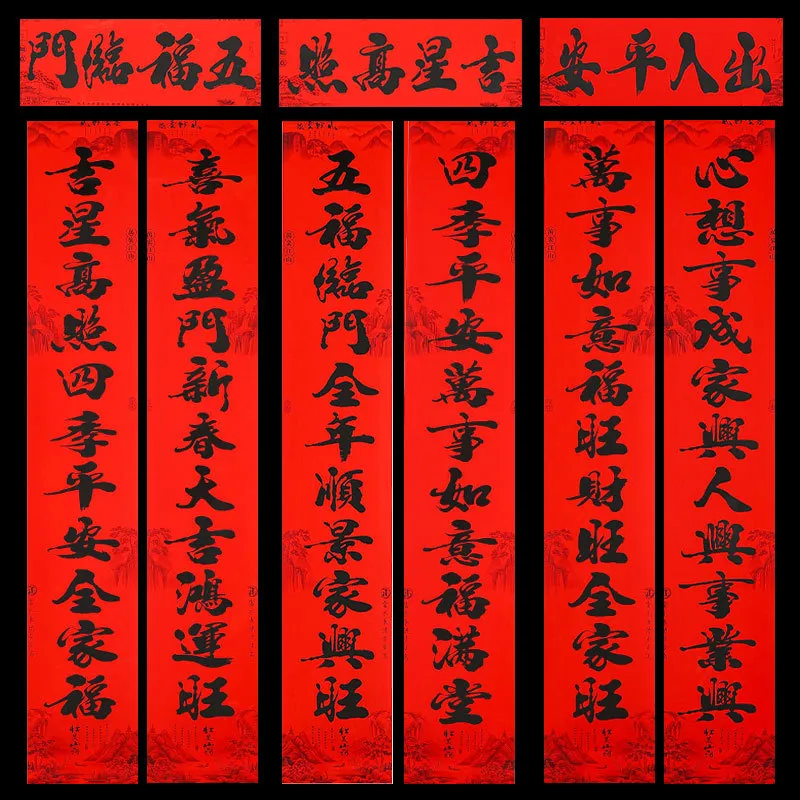 出入平安
心想事成家興人興事業興
萬事如意福旺財旺全家旺
吉星高照
四季平安萬事如意福滿堂
五福臨門全年順景家興旺
五福臨門
喜氣盈門新春天吉鴻運旺
吉星高照四季平安全家福